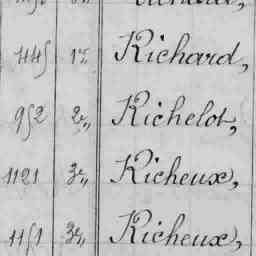 445 12 Richard,
952 2,, Richelot,
1121 3,, Richeux,
1151 3,, Richeux,